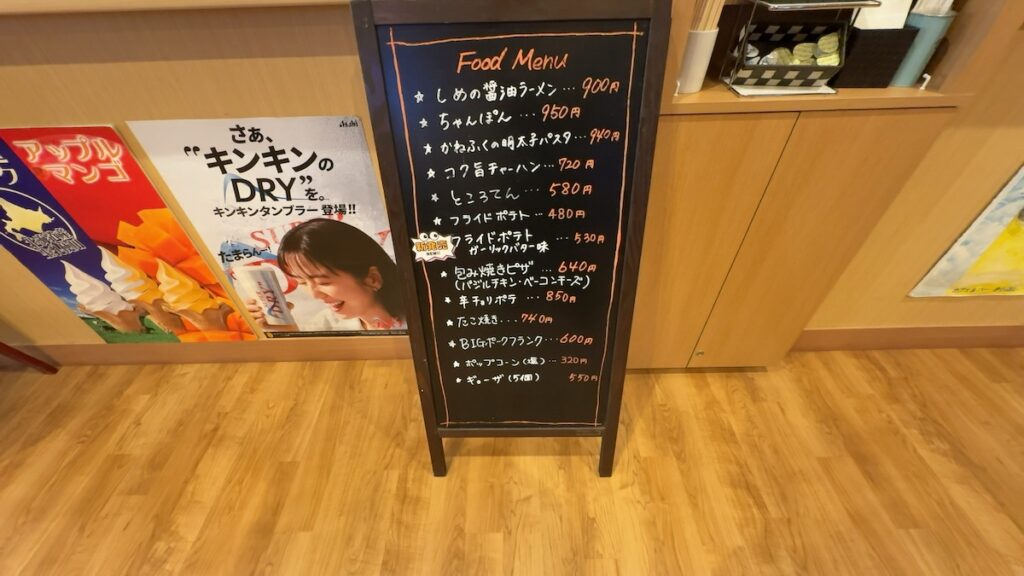 Food Menu
★ しめの醤油ラーメン… 900円
★ ちゃんぽん… 950円
★ かねふくの明太子パスタ… 940円
★ コク旨チャーハン… 720円
★ ところてん… 580円
★ フライドポテト… 480円
新発売
フライドポテト
ガーリックバター味 … 530円
★ 包み焼きピザ … 640円
(バジルチキン・ベーコンチーズ)
★ 辛チョリポテ … 850円
★ たこ焼き… 740円
★ BIGポークフランク… 600円
★ ポップコーン(塩)… 320円
★ ギョーザ(5個) 550円
アップル
マンゴ
Asahi
さあ、
"キンキンの
DRY"を。
キンキンタンブラー登場!!
たまらん